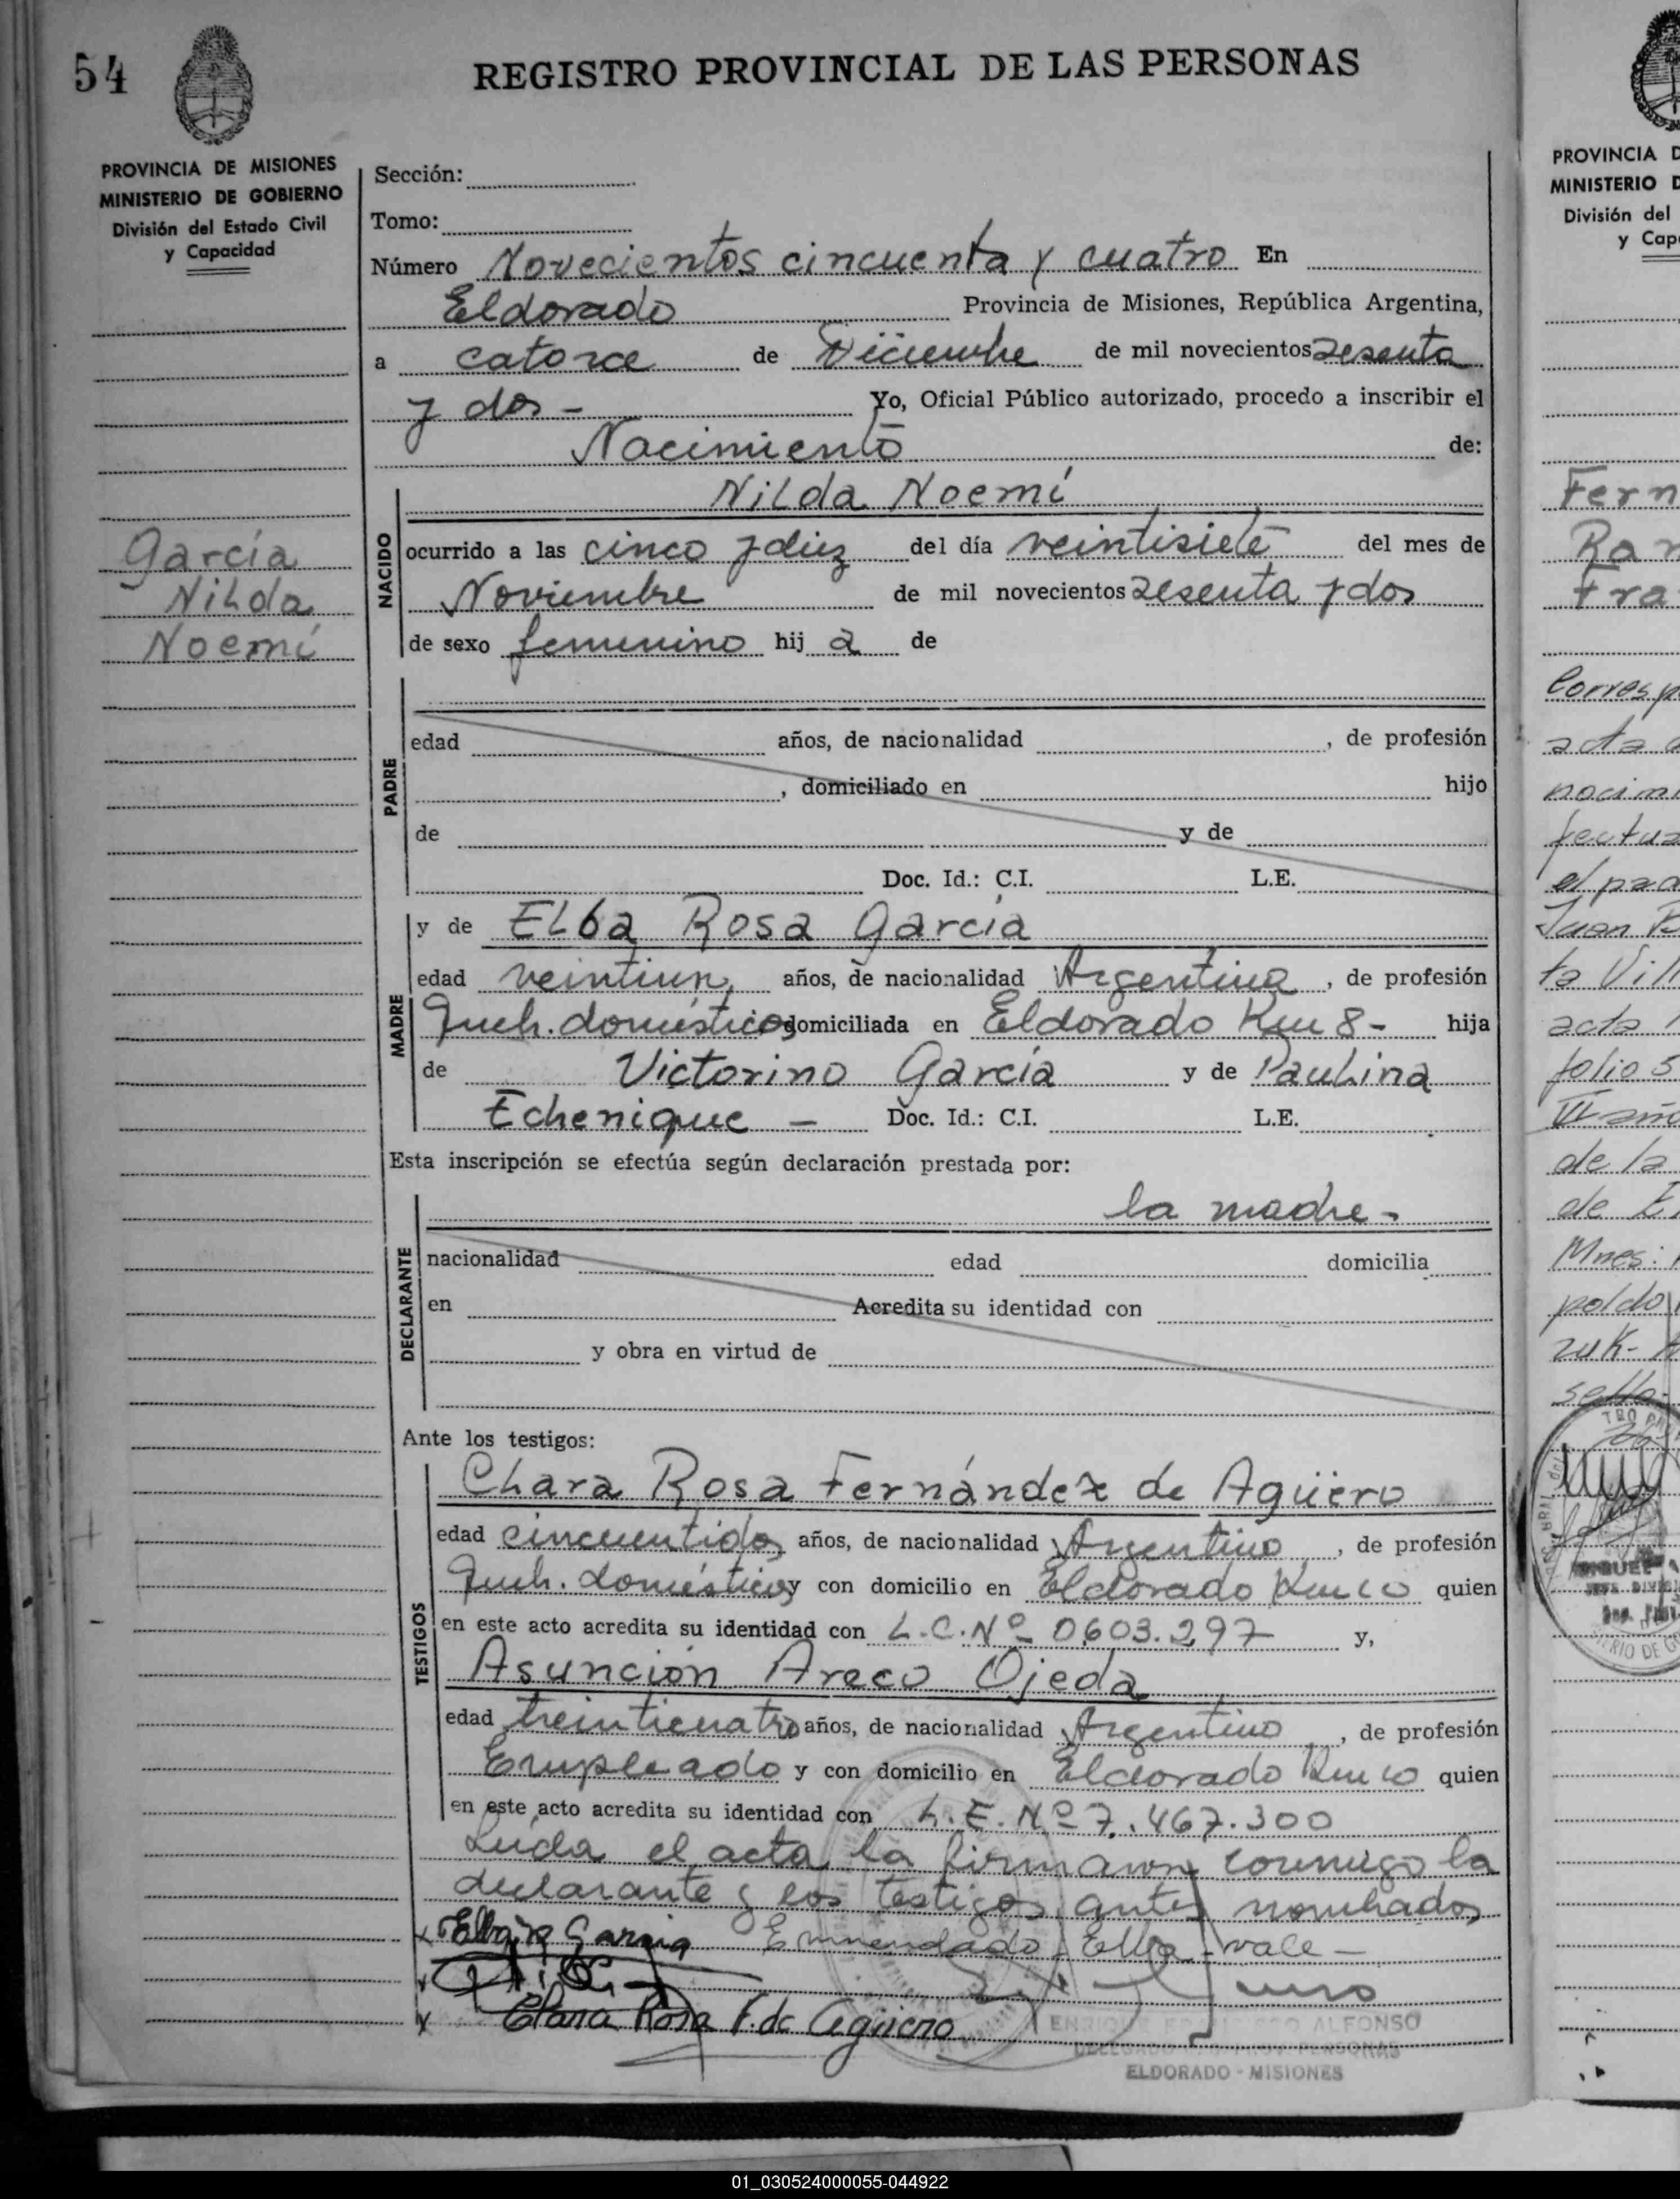 54
REGISTRO PROVINCIAL DE LAS PERSONAS
PROVINCIA DE MISIONES
MINISTERIO DE GOBIERNO
División del Estado Civil
y Capacidad
Sección:
Tomo:
Número Novecientos cincuenta y cuatro En
Eldorado Provincia de Misiones, República Argentina,
a catorce de Diciembre de mil novecientos sesenta
y dos - Yo, Oficial Público autorizado, procedo a inscribir el
Nacimiento de:
García
Nilda
Noemí
NACIDO
Nilda Noemí
ocurrido a las cinco y diez del día veintisiete del mes de
Noviembre de mil novecientos sesenta y dos
de sexo femenino hij a de
PADRE
edad años, de nacionalidad , de profesión
, domiciliado en hijo
de y de
Doc. Id.: C.I. L.E.
MADRE
y de Elba Rosa García
edad veintiun años, de nacionalidad Argentina , de profesión
Queh. domésticos domiciliada en Eldorado Km 8- hija
de Victorino García y de Paulina
Echenique - Doc. Id.: C.I. L.E.
Esta inscripción se efectúa según declaración prestada por:
DECLARANTE
la madre-
nacionalidad edad domicilia
en Acredita su identidad con
y obra en virtud de
Ante los testigos:
TESTIGOS
Clara Rosa Fernández de Agüero
edad cincuentidos años, de nacionalidad Argentino , de profesión
Queh. domésticos y con domicilio en Eldorado Km 10 quien
en este acto acredita su identidad con L.C.Nº 0603.297 y,
Asunción Areco Ojeda
edad treinticuatro años, de nacionalidad Argentino , de profesión
Empleado y con domicilio en Eldorado Km 10 quien
en este acto acredita su identidad con L.E.Nº 7.467.300
Leída el acta la firmaron conmigo la
declarante y los testigos antes nombrados
Elba R García Enmendado: Elba - vale -
Clara Rosa F. de Agüero
ALFONSO
ELDORADO - MISIONES
PROVINCIA D
MINISTERIO D
División del
y Cap
Fern
Ra
Fra
Corresp
acta
nocimi
fectua
el pad
Juan B
ta Vil
acta
folio 5
de la
de E
Mnes:
poldo
zuk-
sello-
01_030524000055-044922